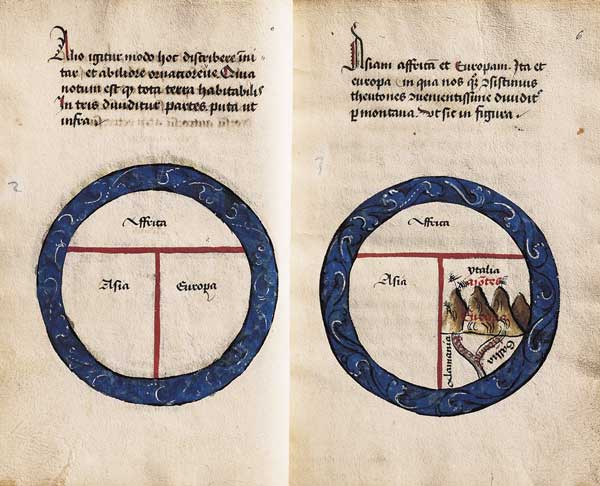 Alio igitur modo hoc discribere ini
tar et abiliore ornatioreue. Quia
notum est qͥ tota terra habitabilis
In tris diuiditur partes, puta ut
infra
Affrica
Asia
Europa
6
Asiam affricam et Europam. Ita et
europa in qua nos
theutones diuidit
p montana. Vt sic in figura.
Affrica
Asia
ytalia
Europa
Alamania
Gallia